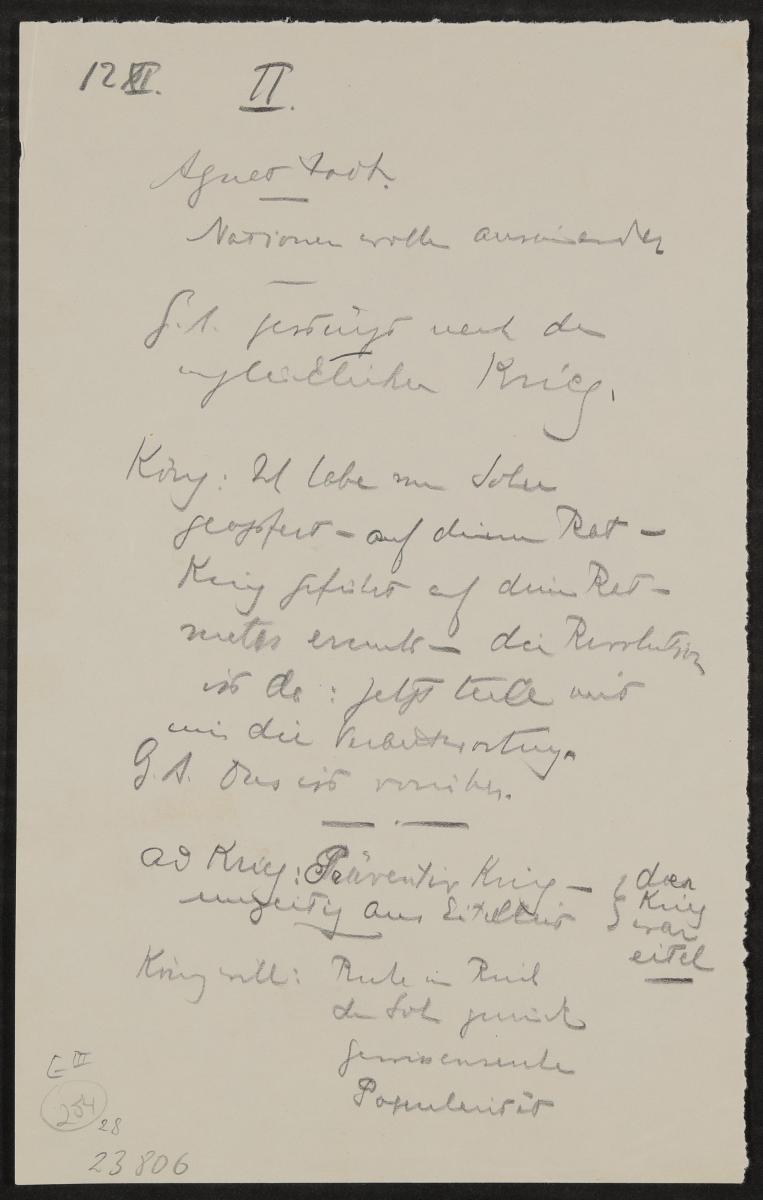 12 XII. II.
Agnes Tod.
Nationen wollen auseinander
G. A. gestürzt nach dem
unglücklichen Krieg.
König: Ich habe meinen Sohn
geopfert – auf deinen Rat –
Krieg geführt auf deinen Rat –
– die Revolution
ist da : jetzt teile mit
mir die Verantwortung.
G. A. Das ist vorüber.
ad Krieg: Präventiv Krieg –
unzeitig aus Eitelkeit
} der
Krieg
war
eitel
König will: Ruhe im Reich
den Sohn zurück
Gewissensruhe
Popularität
E III
254
28
23806